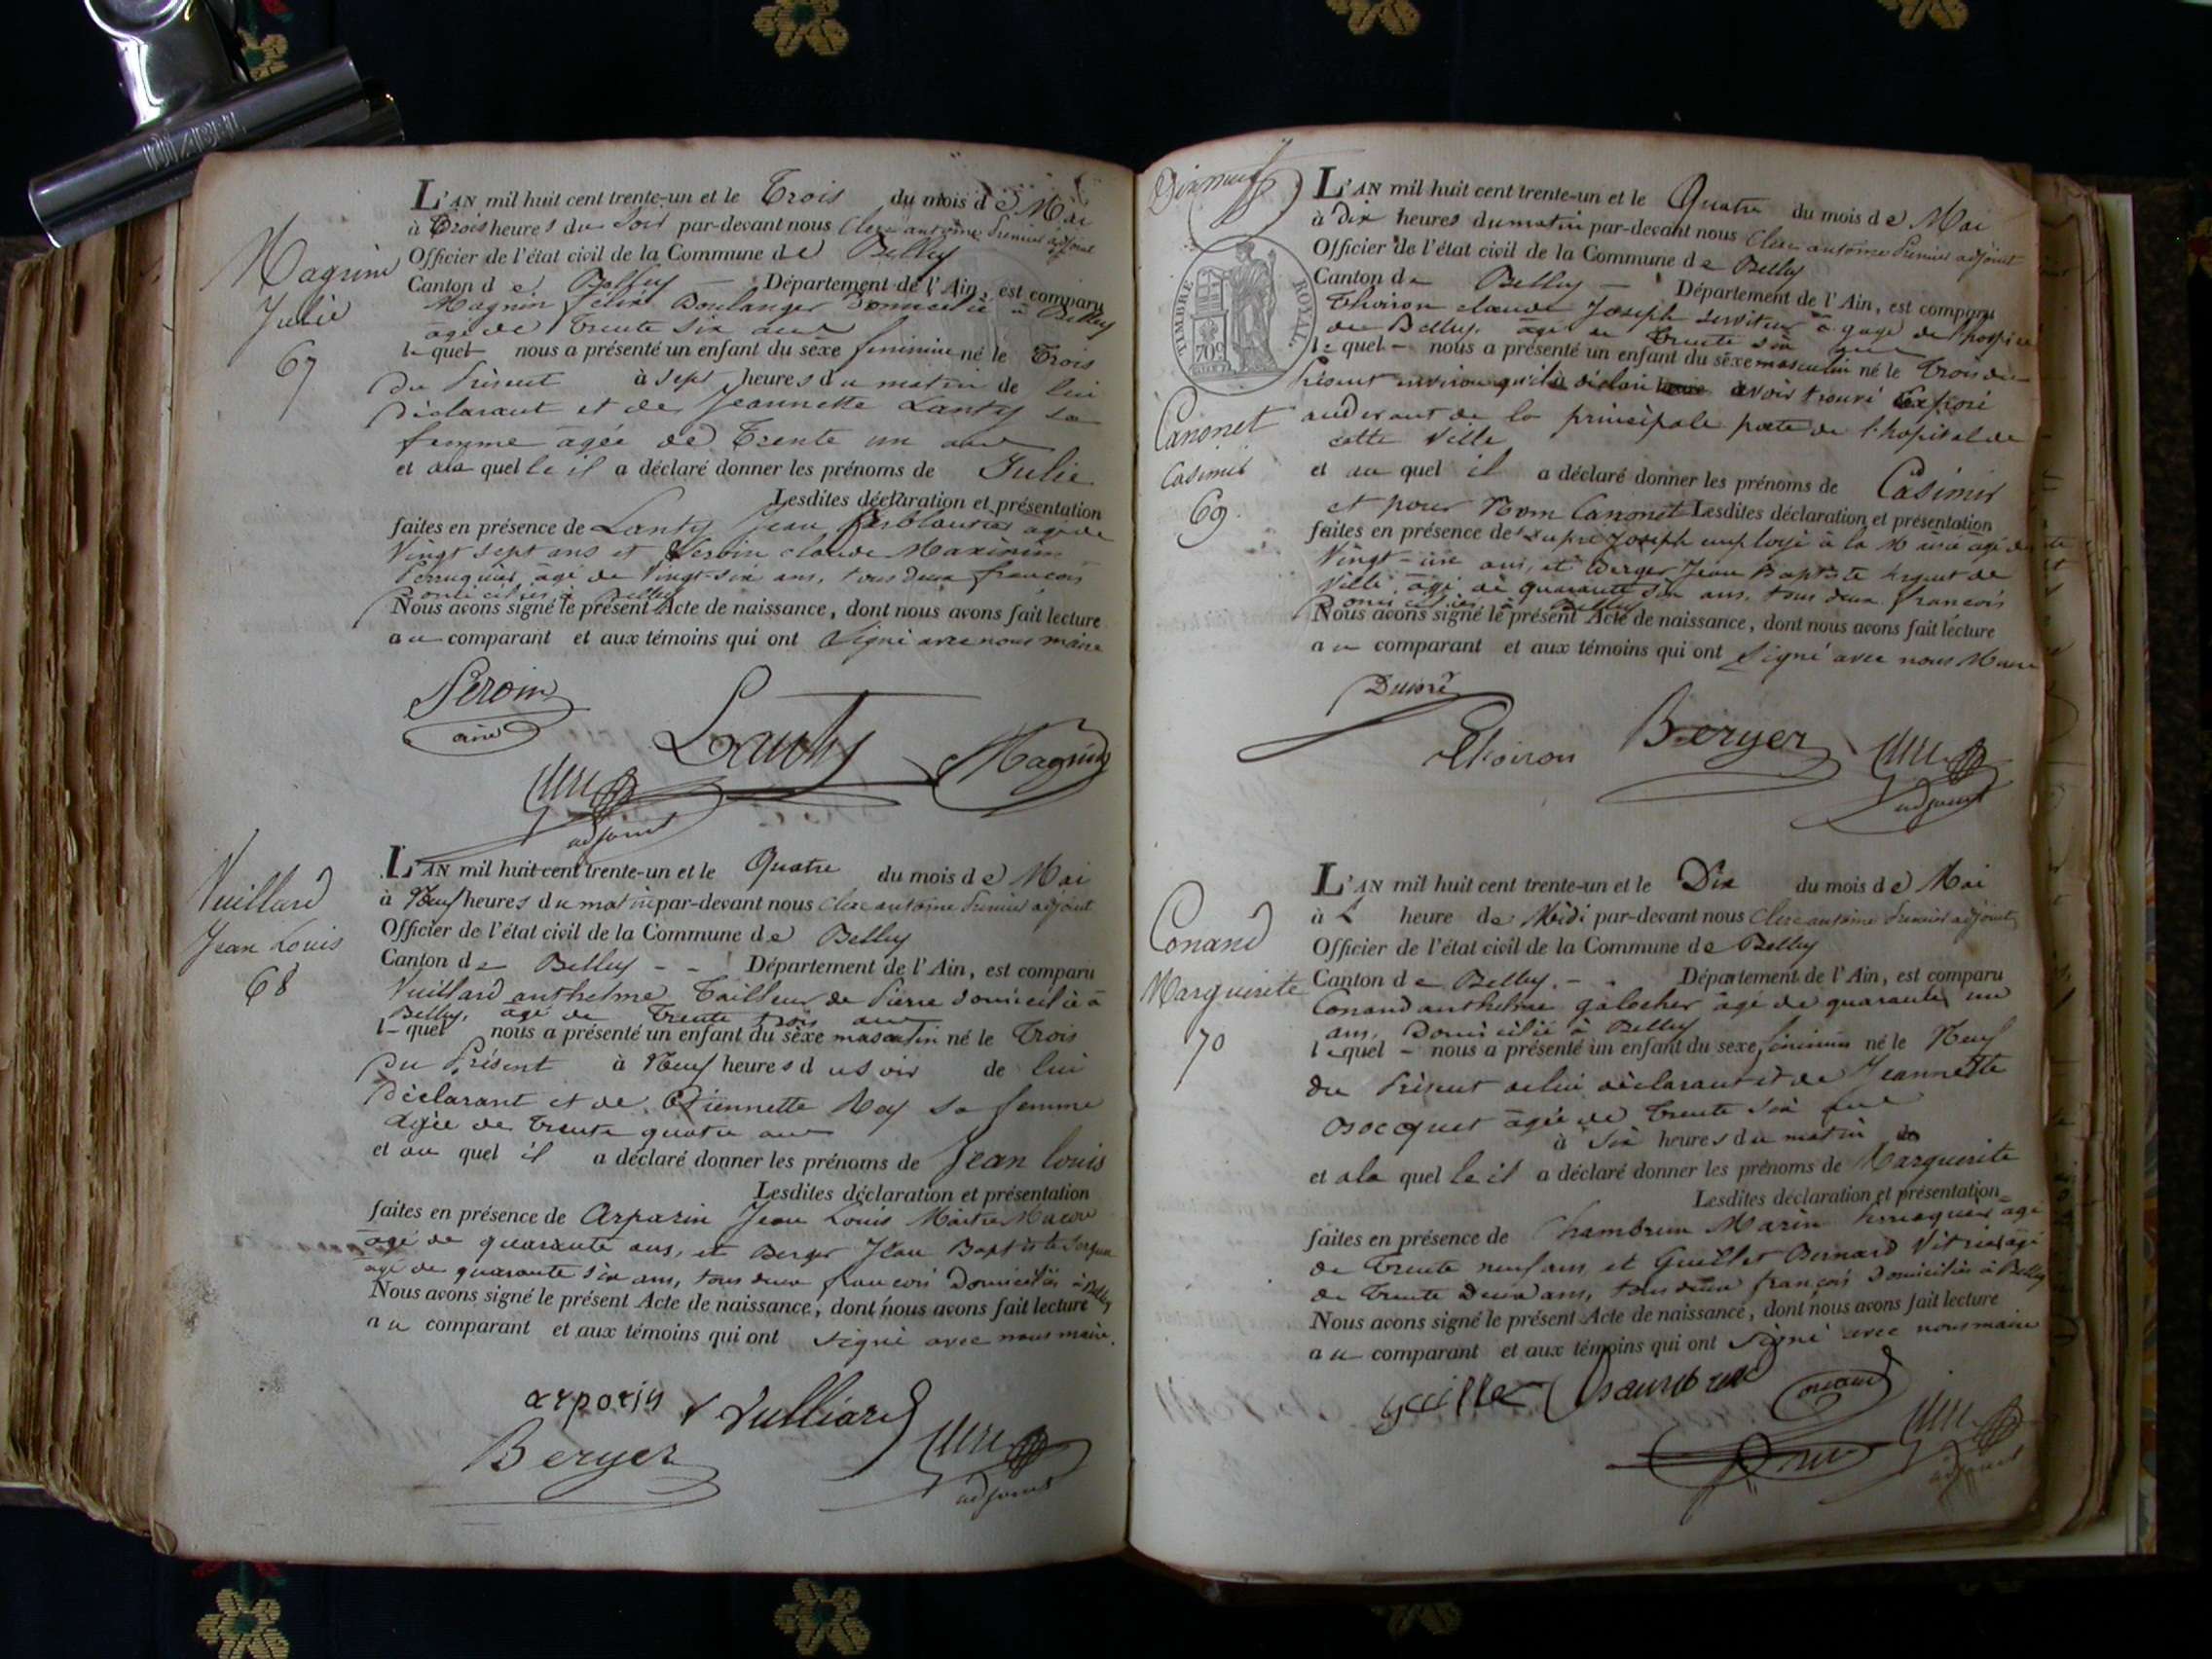 DIABEL
Magnin
Julie
67
L'AN mil huit cent trente-un et le Trois du mois de Mai
à Trois heures du Soir par-devant nous Clerc antoine Premier adjoint
Officier de l'état civil de la Commune de Belley
Canton de Belley Département de l'Ain, est comparu
Magnin félix Boulanger Domicilié à Belley
âgé de Trente Six ans
lequel nous a présenté un enfant du sexe feminine né le Trois
Du Présent à sept heures du matin de lui
Déclarant et de Jeannette Lanty sa
femme âgée de Trente un ans
et ala quelle il a déclaré donner les prénoms de Julie
Lesdites déclaration et présentation
faites en présence de Lanty Jean ferblantier âgé de
Vingt sept ans et claude Maximin
Perruquier âgé de Vingt-six ans, tous deux françois
Domiciliés à Belley
Nous avons signé le présent Acte de naissance, dont nous avons fait lecture
au comparant et aux témoins qui ont Signé avec nous maire
Peroin
ainé
Lanty
Magnin
Clerc
adjoint
Vuillard
Jean Louis
68
L'AN mil huit cent trente-un et le Quatre du mois de Mai
à Neuf heures du matin par-devant nous Clerc antoine Premier adjoint
Officier de l'état civil de la Commune de Belley
Canton de Belley - - Département de l'Ain, est comparu
Vuillard anthelme Tailleur de Pierre domicilié à
Belley, âgé de Trente trois ans
lequel nous a présenté un enfant du sexe masculin né le Trois
Du Présent à Neuf heures du soir de lui
Déclarant et de Etiennette Roy sa femme
Agée de Trente quatre ans
et au quel il a déclaré donner les prénoms de Jean Louis
Lesdites déclaration et présentation
faites en présence de Arparin Jean Louis Maitre Macon
âgé de quarante ans, et Berger Jean Baptiste
âgé de quarante six ans, tous deux françois Domiciliés à Belley
Nous avons signé le présent Acte de naissance, dont nous avons fait lecture
au comparant et aux témoins qui ont signé avec nous maire.
arparin
Vulliard
Berger
Clerc
adjoint
Dix neuf
TIMBRE ROYAL.
Canonet
Casimir
69.
L'AN mil huit cent trente-un et le Quatre du mois de Mai
à Dix heures du matin par-devant nous Clerc antoine Premier adjoint
Officier de l'état civil de la Commune de Belley
Canton de Belley - Département de l'Ain, est comparu
Thoiron claude Joseph serviteur à gage de l'hospice
de Belley, âgé de Trente six ans
lequel - nous a présenté un enfant du sexe masculin né le Trois du
Présent environ qu'il a déclaré avoir trouvé Exposé
audevant de la principale porte de l'hopital de
cette Ville
et au quel il a déclaré donner les prénoms de Casimir
et pour Nom Canonet Lesdites déclaration et présentation
faites en présence de Dupré Joseph employé à la Mairie âgé de
Vingt-un ans, et Berger Jean Baptiste sergent de
Ville âgé de quarante six ans, tous deux françois
Domiciliés à Belley
Nous avons signé le présent Acte de naissance, dont nous avons fait lecture
au comparant et aux témoins qui ont Signé avec nous Maire
Dupré
Thoiron
Berger
Clerc
adjoint
Conand
Marguerite
70
L'AN mil huit cent trente-un et le Dix du mois de Mai
à 1 heure de Midi par-devant nous Clerc antoine Premier adjoint
Officier de l'état civil de la Commune de Belley
Canton de Belley. - Département de l'Ain, est comparu
Conand anthelme galocher âgé de quarante un
ans, Domicilié à Belley
lequel - nous a présenté un enfant du sexe féminin né le Neuf
du Présent de lui déclarant et de Jeannette
Bocquet âgée de Trente six ans
à Six heures du matin
et ala quelle il a déclaré donner les prénoms de Marguerite
Lesdites déclaration et présentation
faites en présence de Chambrun Marin Perruquier âgé
de Trente neuf ans, et Guillet Bernard Vitrier âgé
de Trente Deux ans, tous deux françois Domiciliés à Belley
Nous avons signé le présent Acte de naissance, dont nous avons fait lecture
au comparant et aux témoins qui ont signé avec nous maire
guillet
Chambrun
Conand
Clerc
adjoint